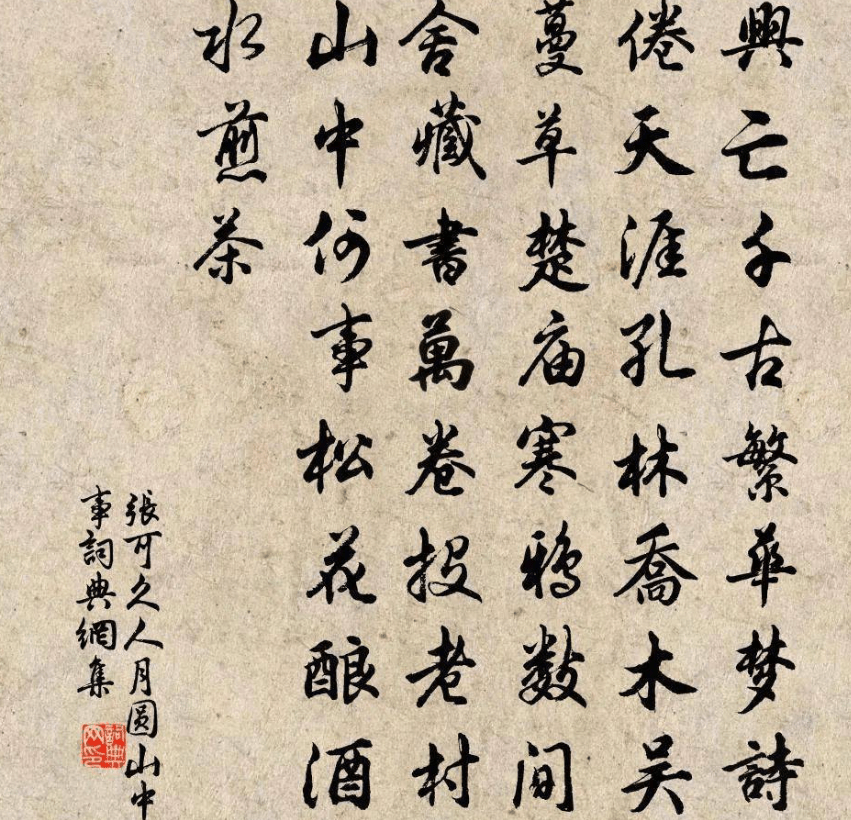 興亡千古繁華梦詩
倦天涯孔林喬木吴
蔓草楚庙寒鴉數间
舍藏書萬卷投老村
山中何事松花酿酒
水煎茶
張可久人月圓山中
事詞典網集
詞典网印